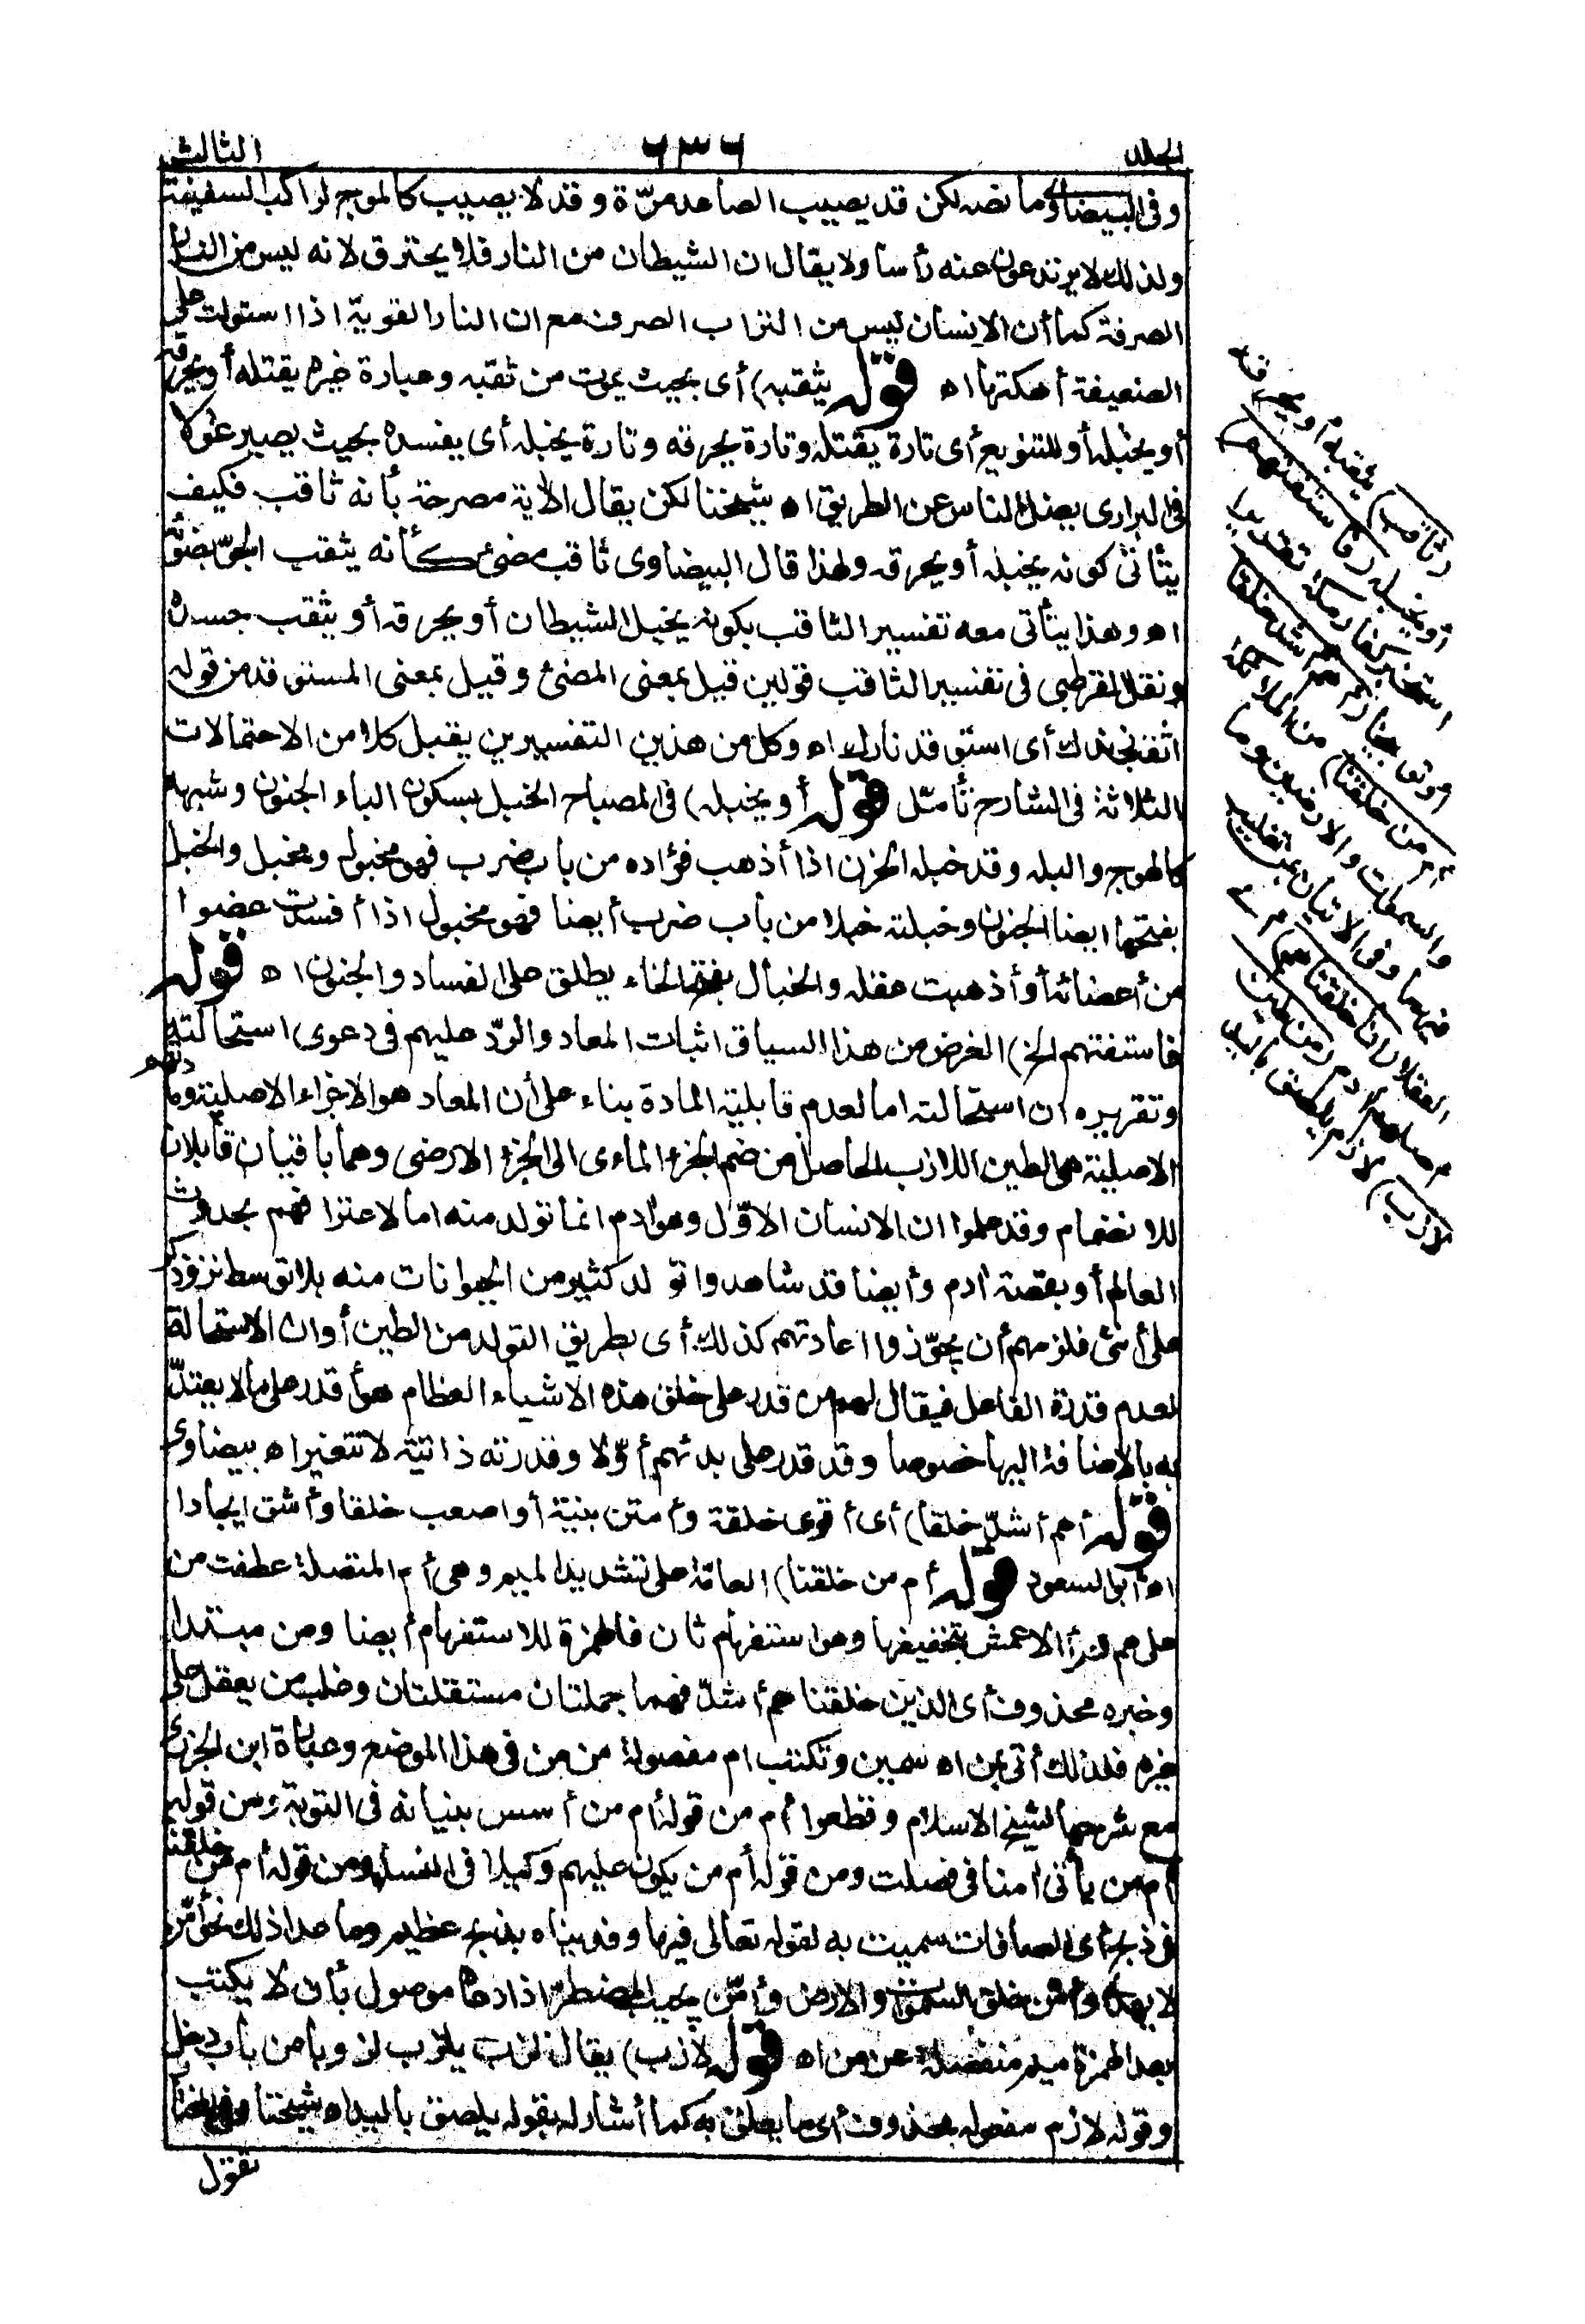 المجلد ٦٣٦ الثالث
وفى البيضاوى ما نصه لكن قد يصيب الصاعد مرّة وقد لا يصيب كالموج لراكب السفينة
ولذلك لا يرتدعون عنه رأسا ولا يقال ان الشيطان من النار فلا يحترق لانه ليس من النار
الصرفة كما أن الانسان ليس من التراب الصرف مع ان النار القوية اذا استولت على
الضعيفة أهلكتها اه قوله يثقبه) أى بحيث يموت من ثقبه وعبارة غيره يقتله أو يحرقه
أو يخبله أو للتنويع أى تارة يقتله وتارة يحرقه وتارة يخبله أى يفسده بحيث يصير غولا
فى البرارى يضل الناس عن الطريق اه شيخنا لكن يقال الأية مصرحة بأنه ثاقب فكيف
يتأتى كونه يخبله أو يحرقه ولهذا قال البيضاوى ثاقب مضئ كأنه يثقب الجوّ بضوئه
اه وهذا يتأتى معه تفسير الثاقب بكونه يخبل الشيطان أو يحرقه أو يثقب جسده
ونقل القرطبى فى تفسير الثاقب قولين قيل بمعنى المضئ وقيل بمعنى المستوقد من قولهم
اثقب زندك أى استوقد نارك اه وكل من هذين التفسيرين يقبل كلا من الاحتمالات
الثلاثة فى الشارح تأمّل قوله أو يخبله) فى المصباح الخبل بسكون الباء الجنون وشبهه
كالهوج والبله وقد خبله الحزن اذا أذهب فؤاده من باب ضرب فهو مخبول ومخبل والخبل
بفتحها ايضا الجنون وخبلته خبلا من باب ضرب أيضا فهو مخبول اذا أفسدت عضوا
من أعضائه أو أذهبت عقله والخبال بفتح الخاء يطلق على الفساد والجنون اه قوله
فاستفتهم الخ) الغرض من هذا السياق اثبات المعاد والردّ عليهم فى دعوى استحالته
وتقريره ان استحالته اما لعدم قابلية المادة بناء على أن المعاد هو الاجزاء الاصلية ومادتهم
الاصلية هى الطين اللازب الحاصل من ضم الجزء المائى الى الجزء الارضى وهما باقيان قابلان
للانضمام وقد علموا ان الانسان الاوّل وهو آدم انما تولد منه اما لاعترافهم بحدوث
العالم أو بقصة آدم وأيضا قد شاهدوا تولد كثير من الحيوانات منه بلا توسط نزو ذكر
على أنثى فلزمهم أن يجوّزوا اعادتهم كذلك أى بطريق التولد من الطين أو ان الاستحالة
لعدم قدرة الفاعل فيقال لهم من قدر على خلق هذه الاشياء العظام هو أقدر على ما لا يعتدّ
به بالاضافة اليها خصوصا وقد قدر على بدئهم أوّلا وقدرته ذاتية لا تتغير اه بيضاوى
قوله أهم أشدّ خلقا) أى أقوى خلقة وأمتن بنية أو اصعب خلقا وأشق ايجادا
اه أبو السعود قوله أم من خلقنا) العامّة على تشديد الميم وهى أم المتصلة عطفت من
على هم وقرأ الاعمش بتخفيفها وهو استفهام ثان فالهمزة للاستفهام أيضا ومن مبتدا
وخبره محذوف أى الذين خلقنا هم أشدّ فهما جملتان مستقلتان وغلب من يعقل على
غيره فلذلك أتى بمن اه سمين وتكتب ام مفصولة من من فى هذا الموضع وعبارة ابن الجزرى
مع شرحها لشيخ الاسلام وقطعوا أم من قوله أم من أسس بنيانه فى التوبة ومن قوله
أم من يأتى آمنا فى فصلت ومن قوله أم من يكون عليهم وكيلا فى النساء ومن قوله أم من خلقنا
فى ذبح أى الصافات سميت به لقوله تعالى فيها وفديناه بذبح عظيم وما عدا ذلك نحو أمّن
لا يهدى وأمّن خلق السموات والارض وأمّن يجيب المضطرّ اذا دعاه موصول بأن لا يكتب
بعد الهمزة ميم منفصلة عن من اه قوله لازب) يقال لزب يلزب لزوبا من باب دخل
وقوله لازم مفعوله محذوف أى ما يعلق به كما أشار له بقوله يلصق باليد اه شيخنا وفى البيضا
تقول
(ثاقب) يثقبه أو يحرقه
أو يخبله (فاستفتهم)
استخبر كفار مكة تقريرا
أو توبيخا (أهم أشد خلقا
أم من خلقنا) من الملائكة
والسموات والارضين وما
فيهما وفى الاتيان بمن تغليب
العقلاء (انا خلقناهم) أى
أصلهم آدم (من طين
لازب) لازم يلصق باليد